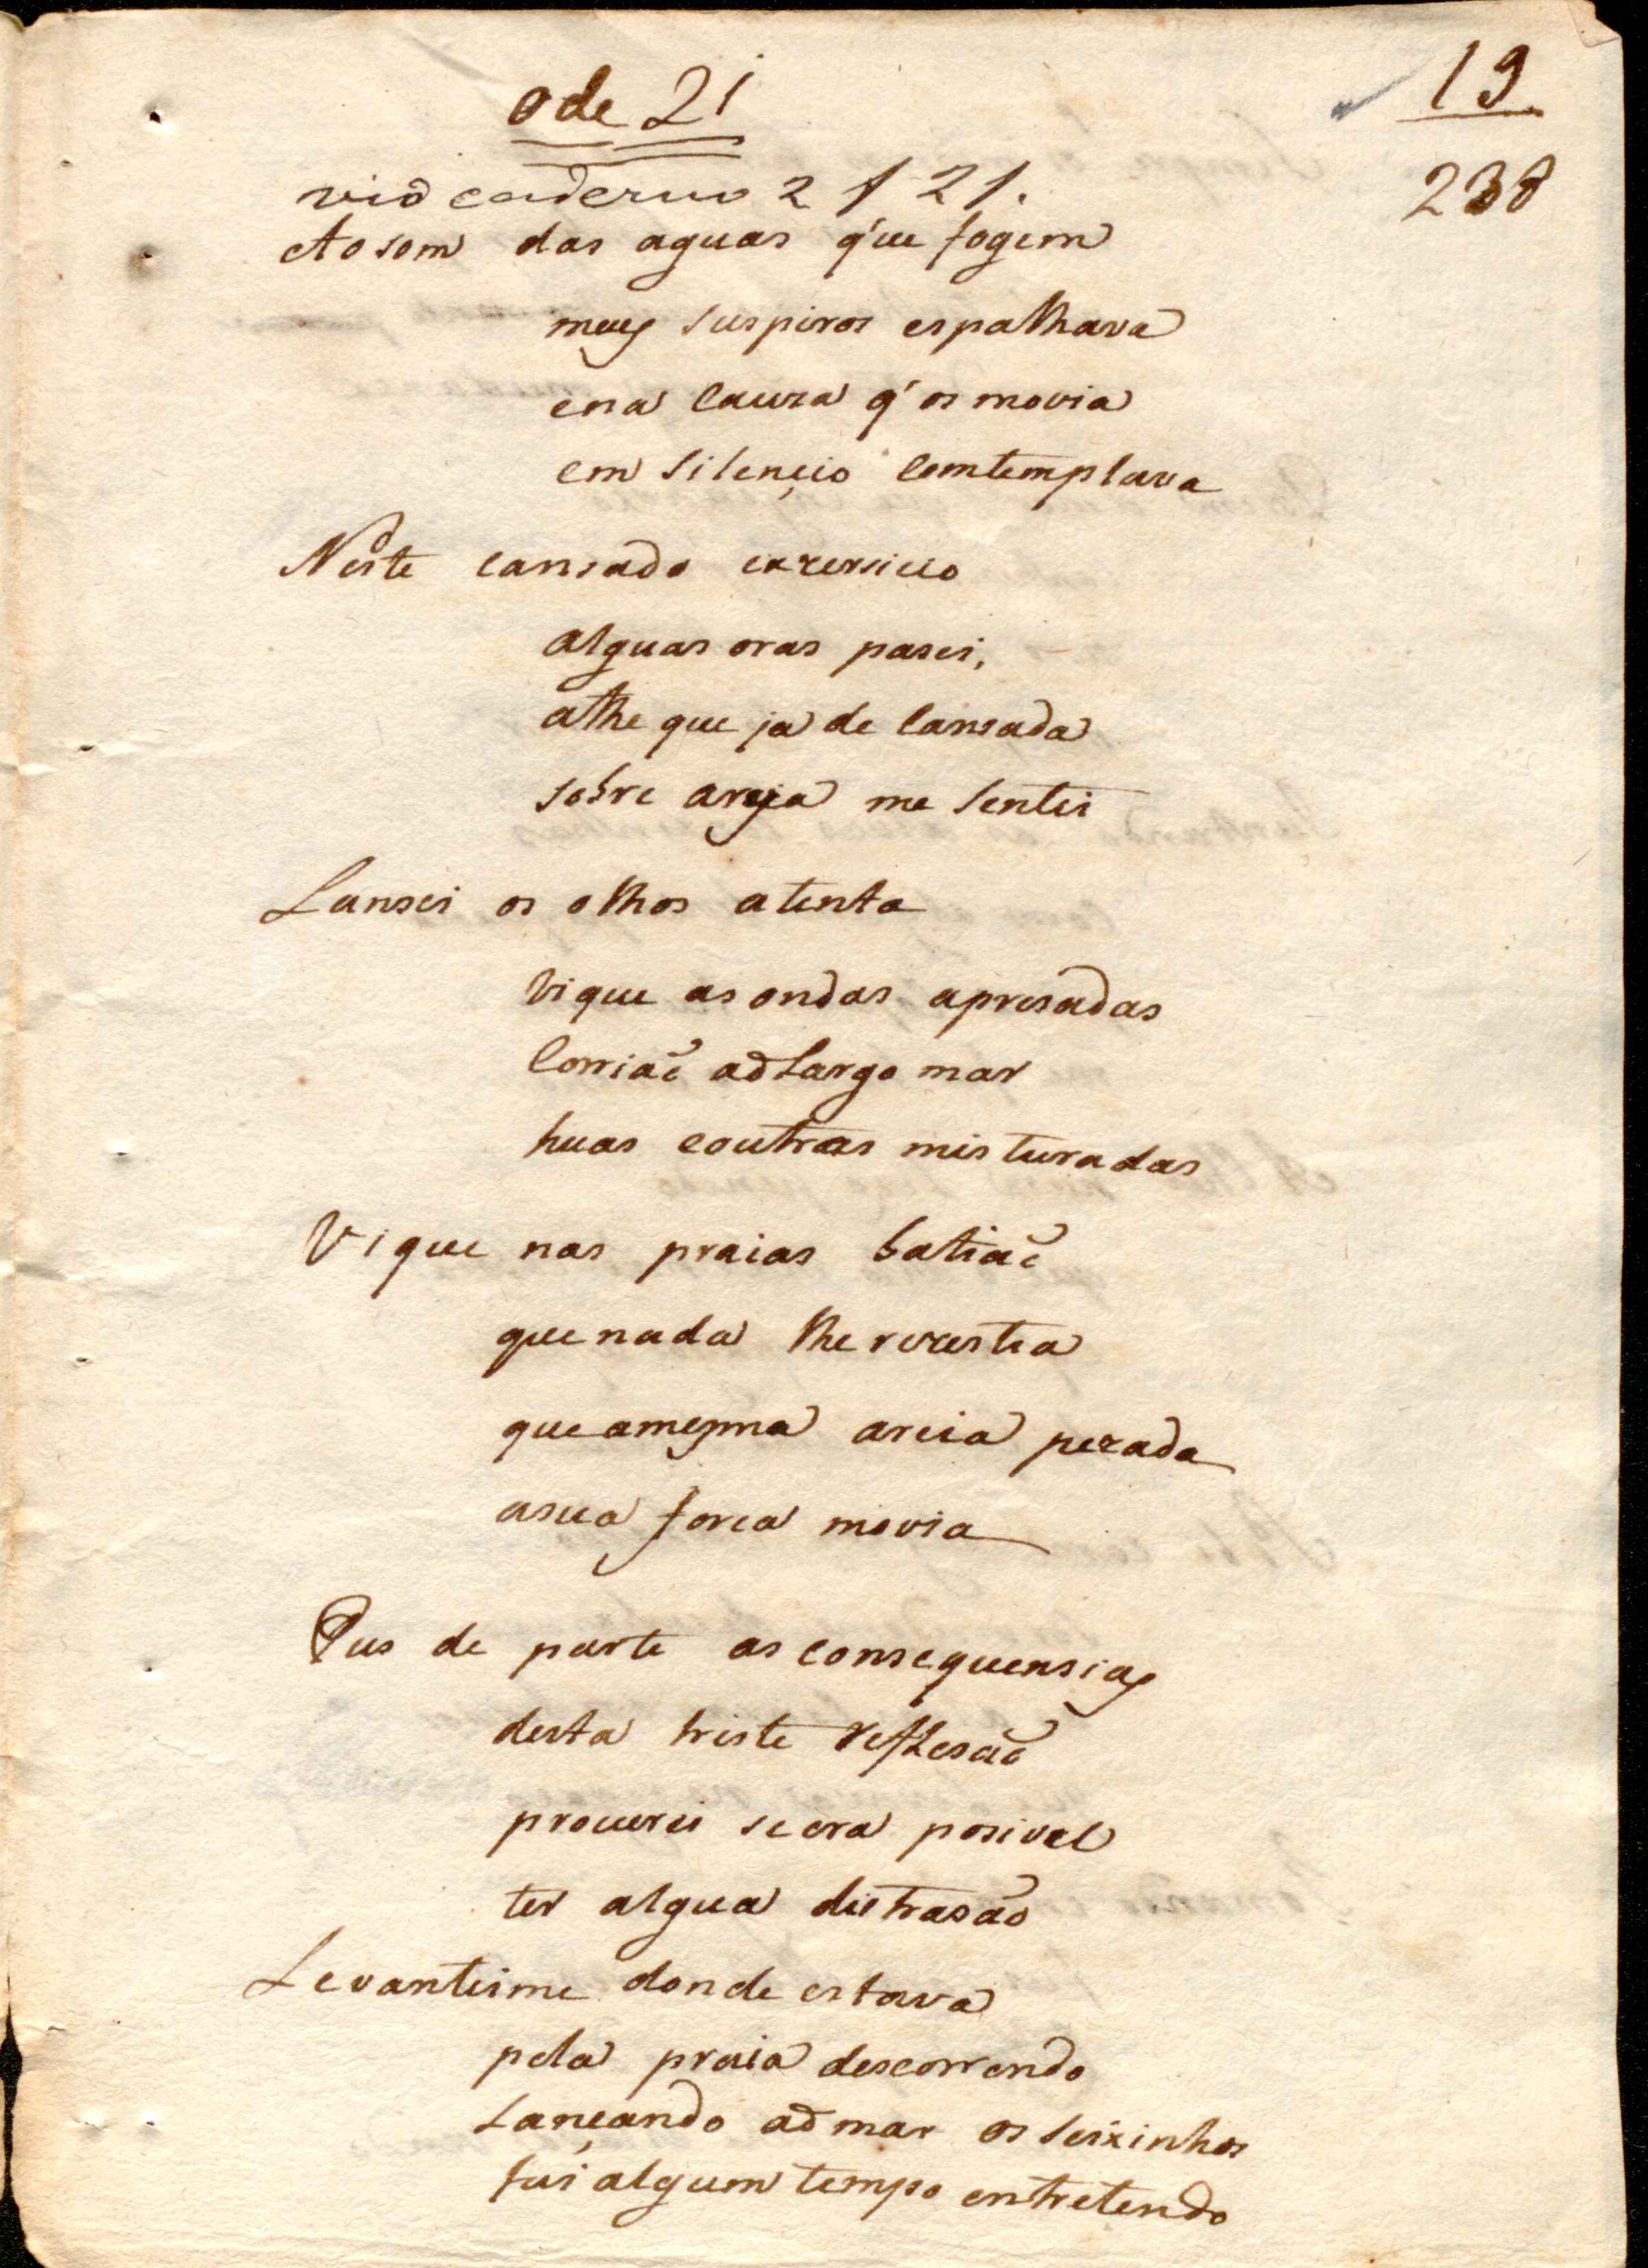 ode 21
19
238
vid caderno 2 f 21.
Ao som das aguas q'ue fogem
meus suspiros espalhava
ena cauza q' os movia
em silençio comtemplava
Neste cansado exzersicio
alguas oras pasei,
athe que ja de cansada
sobre areja me sentei
Lansei os olhos atenta
Vi que as ondas apresadas
Corriaõ aõ Largo mar
huas eoutras misturadas
Vi que nas praias batiaõ
que nada lhe rezestia
que amesma areia pezada
asua forca movia
Pus de parte as consequensias
desta triste reflesaõ
procurei se era posivel
ter algua distrasaõ
Levanteime donde estava
pela praia descorrendo
Lançando aõ mar os seixinhos
fui algum tempo entretendo